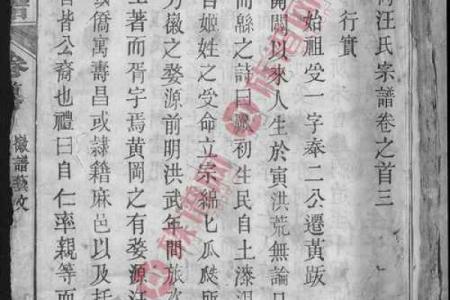 汪氏宗譜卷之首三
行實
始祖受一字奉二公遷黃跋
開闢以來人生於寅洪荒無論
而緜之詩曰厥初生民自土漆沮
百姬姓之受命立宗綿七瓜瓞所
徽之婺源前明洪武年間旅
土著而胥宇焉黃岡之有婺源汪
或僑寓壽昌或隸籍麻邑以及托
皆公裔也禮曰自仁率親等而
譜
徽譜藝文